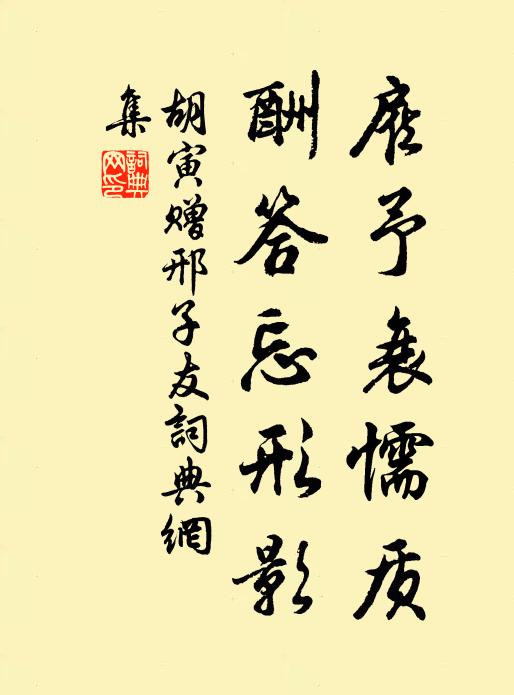 予衰懦质
酬答忘形影
胡寅赠邢子友詞典網
集
詞典
网印